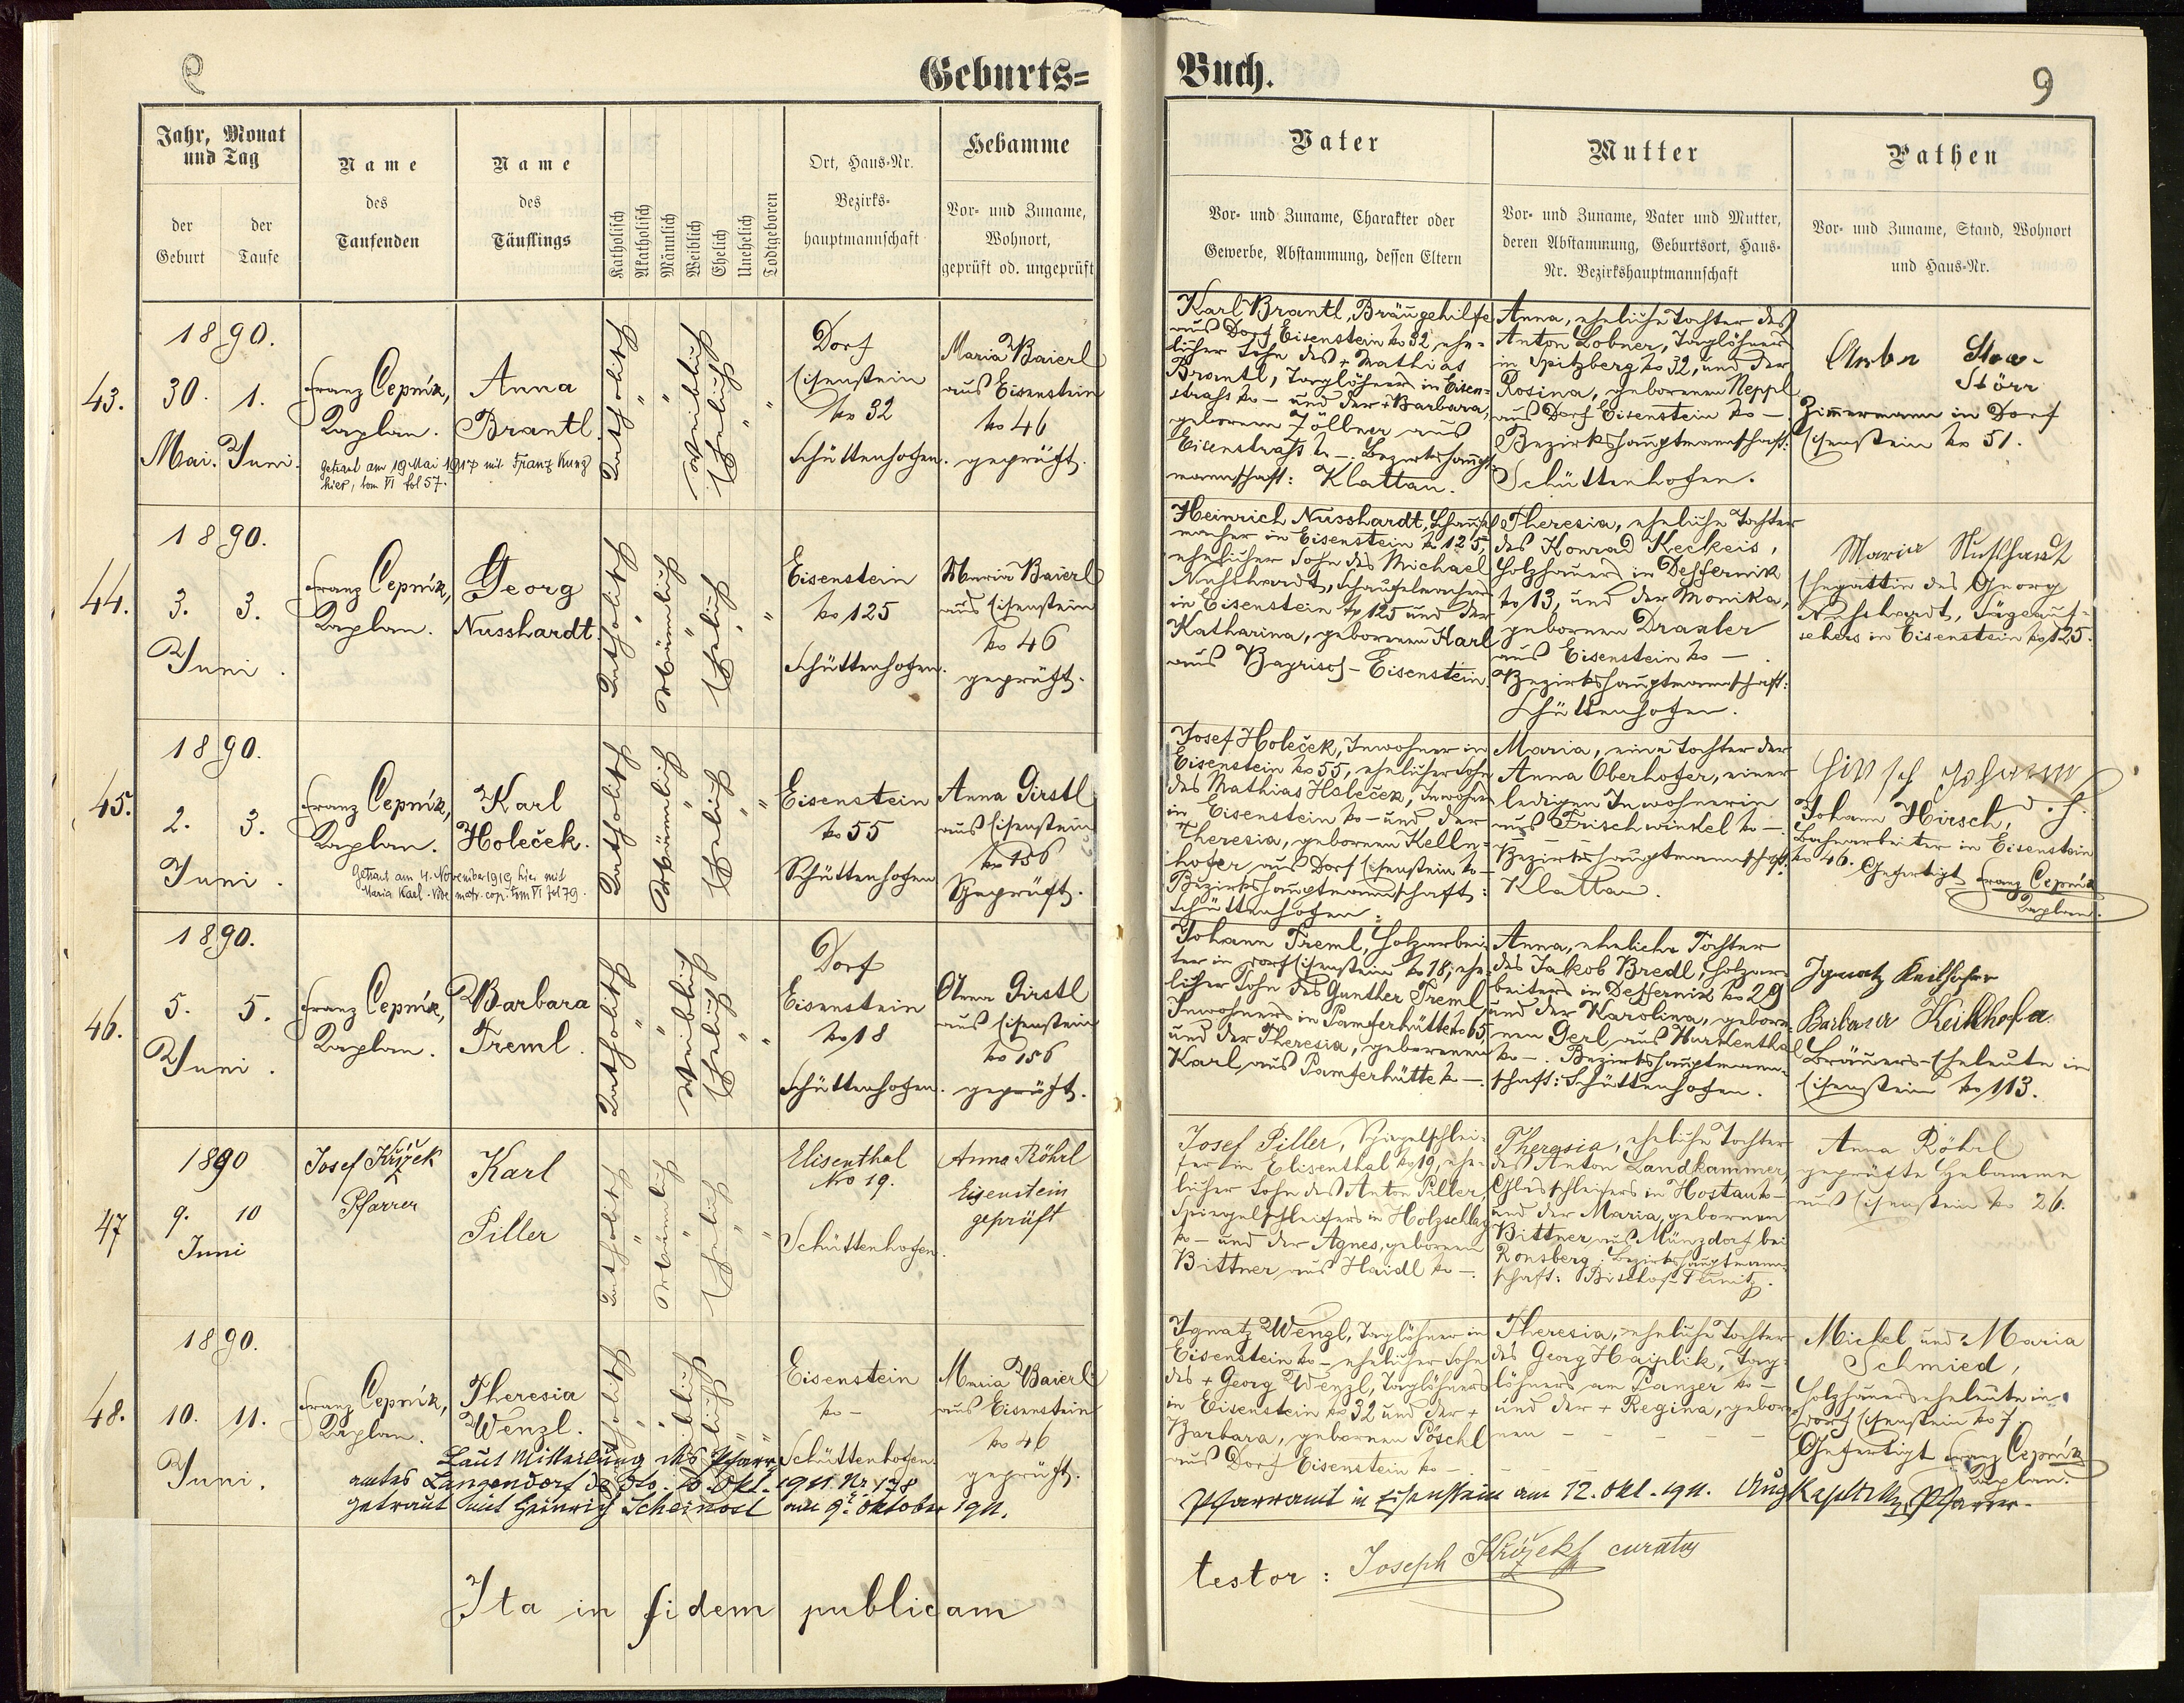 9
Geburts=
Jahr, Monat
und Tag
der
Geburt
der
Taufe
Name
des
Taufenden
Name
des
Täuflings
Katholisch
Akatholisch
Männlich
Weiblich
Ehelich
Unehelich
Todtgeboren
Ort, Haus-Nr.
Bezirks-
hauptmannschaft
Hebamme
Vor- und Zuname,
Wohnort,
geprüft od. ungeprüft
43.
1890.
30. 1.
Mai. Juni.
Franz Čepnik,
Kaplan.
Anna
Brantl.
Getraut am 19 Mai 1917 mit Franz Kunz
hier, tom VI fol 57.
Katholisch
Weiblich
Ehelich
Dorf
Eisenstein
No 32
Schüttenhofen.
Maria Baierl
aus Eisenstein
No 46
geprüft.
44.
1890.
3. 3.
Juni.
Franz Čepnik,
Kaplan.
Georg
Nusshardt.
Katholisch
Männlich
Ehelich
Eisenstein
No 125
Schüttenhofen.
Maria Baierl
aus Eisenstein
No 46
geprüft.
45.
1890.
2. 3.
Juni.
Franz Čepnik,
Kaplan.
Karl
Holeček.
Getraut am 4. November 1919 hier mit
Maria Karl - Vide matr. cop. tom VI fol 79.
Katholisch
Männlich
Ehelich
Eisenstein
No 55
Schüttenhofen
Anna Girstl
aus Eisenstein
No 156
Geprüft.
46.
1890.
5. 5.
Juni.
Franz Čepnik,
Kaplan.
Barbara
Treml.
Katholisch
Weiblich
Ehelich
Dorf
Eisenstein
No 18
Schüttenhofen.
Anna Girstl
aus Eisenstein
No 156
geprüft.
47
1890
9. 10
Juni
Josef Křižek
Pfarrer
Karl
Piller
Katholisch
Männlich
Ehelich
Elisenthal
No 19.
Schüttenhofen.
Anna Röhrl
Eisenstein
geprüft
48.
1890.
10. 11.
Juni.
Franz Čepnik,
Kaplan.
Theresia
Wenzl.
Katholisch
Weiblich
Ehelich
Eisenstein
No –
Schüttenhofen.
Maria Baierl
aus Eisenstein
No 46
geprüft.
Laut Mitteilung des Pfarr-
amtes Langendorf de dto. 10. Okt. 1911. Nr 178
getraut mit Heinrich Scheinost am 9. Oktober 1911.
Ita in fidem publicam
Buch.
9
Vater
Vor- und Zuname, Charakter oder
Gewerbe, Abstammung, dessen Eltern
Mutter
Vor- und Zuname, Vater und Mutter,
deren Abstammung, Geburtsort, Haus-
Nr. Bezirkshauptmannschaft
Pathen
Vor- und Zuname, Stand, Wohnort
und Haus-Nr.
Karl Brantl, Bräugehilfe
aus Dorf Eisenstein No 32, ehe-
licher Sohn des + Mathias
Brantl, Taglöhners in Eisen-
straß No – und der + Barbara,
gebornen Zöllner aus
Eisenstraß No –. Bezirkshaupt-
mannschaft: Klattau.
Anna, eheliche Tochter des
Anton Lobner, Taglöhners
in Spitzberg No 32, und der
Rosina, gebornen Neppl
aus Dorf Eisenstein No –.
Bezirkshauptmannschaft:
Schüttenhofen.
Störr
Zimmermann in Dorf
Eisenstein No 51.
Heinrich Nusshardt, Schaufel-
macher in Eisenstein No 125,
ehelicher Sohn des Michael
Nußhardt, Schaufelmachers
in Eisenstein No 125 und der
Katharina, gebornen Karl
aus Bayrisch-Eisenstein.
Theresia, eheliche Tochter
des Konrad Keckeis,
Holzhauers in Deffernik
No 13, und der Monika,
gebornen Draxler
aus Eisenstein No –.
Bezirkshauptmannschaft:
Schüttenhofen.
Maria Nußhardt
Ehegattin des Georg
Nußhardt, Sägeauf-
sehers in Eisenstein No 125.
Josef Holeček, Inwohner in
Eisenstein No 55, ehelicher Sohn
des Mathias Holeček, Inwohners
in Eisenstein No – und der
Theresia, gebornen Kelln-
hofer aus Dorf Eisenstein No –
Bezirkshauptmannschaft:
Schüttenhofen.
Maria, eine Tochter der
Anna Oberhofer, einer
ledigen Inwohnerin
aus Frischwinkel No –.
Bezirkshauptmannschaft:
Klattau.
Hirsch Johann
Johann Hirsch,
Bahnarbeiter in Eisenstein
No 46. Gefertigt Franz Čepnik
Kaplan.
Johann Treml, Holzarbei-
ter in Dorf Eisenstein No 18, ehe-
licher Sohn des Gunther Treml
Inwohners in Pamferhütte No 65,
und der Theresia, gebornen
Karl, aus Pamferhütte No –.
Anna, eheliche Tochter
des Jakob Bredl, Holzar-
beiters in Deffernik No 29
und der Karolina, gebor-
nen Gerl aus Hurkenthal
No –. Bezirkshauptmann-
schaft: Schüttenhofen.
Ignatz Keilhofer
Barbara Keilhofa
Bräuers-Eheleute in
Eisenstein No 113.
Josef Piller, Spiegelschlei-
fer in Elisenthal No 19, ehe-
licher Sohn des Anton Piller,
Spiegelschleifers in Holzschlag
No – und der Agnes, gebornen
Bittner aus Haidl No –.
Theresia, eheliche Tochter
des Anton Landkammer,
Glasschleifers in Hostau No –
und der Maria, gebornen
Bittner aus Münzdorf bei
Ronsberg; Bezirkshauptmann-
schaft: Bischof-Teinitz.
Anna Röhrl
geprüfte Hebamme
aus Eisenstein No 26.
Ignatz Wenzl, Taglöhner in
Eisenstein No – ehelicher Sohn
des + Georg Wenzl, Taglöhners
in Eisenstein No 32 und der +
Barbara, gebornen Pöschl
aus Dorf Eisenstein No –.
Theresia, eheliche Tochter
des Georg Hajplik, Tag-
löhners am Panzer No –
und der + Regina, gebor-
nen – – – – –
Michel und Maria
Schmied,
Holzhauerseheleute in
Dorf Eisenstein No 7.
Gefertigt Franz Čepnik
Kaplan.
Pfarramt in Eisenstein am 12. Okt. 1911. Pfarrer.
testor: Joseph Křižek curatus